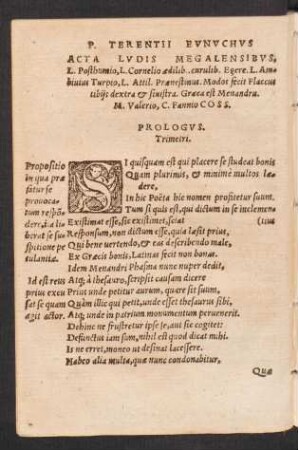 P. TERENTII EVNVCHVS
ACTA LVDIS MEGALENSIBVS,
L. Posthumio, L. Cornelio ædilib. curulib. Egere. L. Am-
biuius Turpio, L. Attil. Prænestinus. Modos fecit Flaccus
tibijs dextra & sinistra. Græca est Menandru.
M. Valerio, C. Fannio COSS.
PROLOGVS.
Trimetri.
Propositio
in qua præ
fatur se
prouoca-
tum respō-
dere, & a li
borat se su
spitione pe
tulantiæ.
Id est reus
prius excu
sat se quam
agit actor.
SI quisquam est qui placere se studeat bonis
Quàm plurimis, & minimè multos læ-
dere,
In hic Poëta hic nomen profitetur suum.
Tum si quis est, qui dictum in se inclemen-
(tius
Existimat esse, sic existimet, sciat
Responsum, non dictum esse, quia læsit prius,
Qui bene vertendo, & eas describendo male,
Ex Græcis bonis, Latinas fecit non bonas.
Idem Menandri Phasma nunc nuper dedit,
Atq; in thesauro, scripsit causam dicere
Prius unde petitur aurum, quare sit suum,
Quàm illic qui petit, unde esset thesaurus sibi,
Atq; unde in patrium monumentum peruenerit.
Dehinc ne frustretur ipse se, aut sic cogitet:
Defunctus iam sum, nihil est quod dicat mihi.
Is ne erret, moneo ut desinat lacessere.
Habeo alia multa, quæ nunc condonabitur,
Quæ